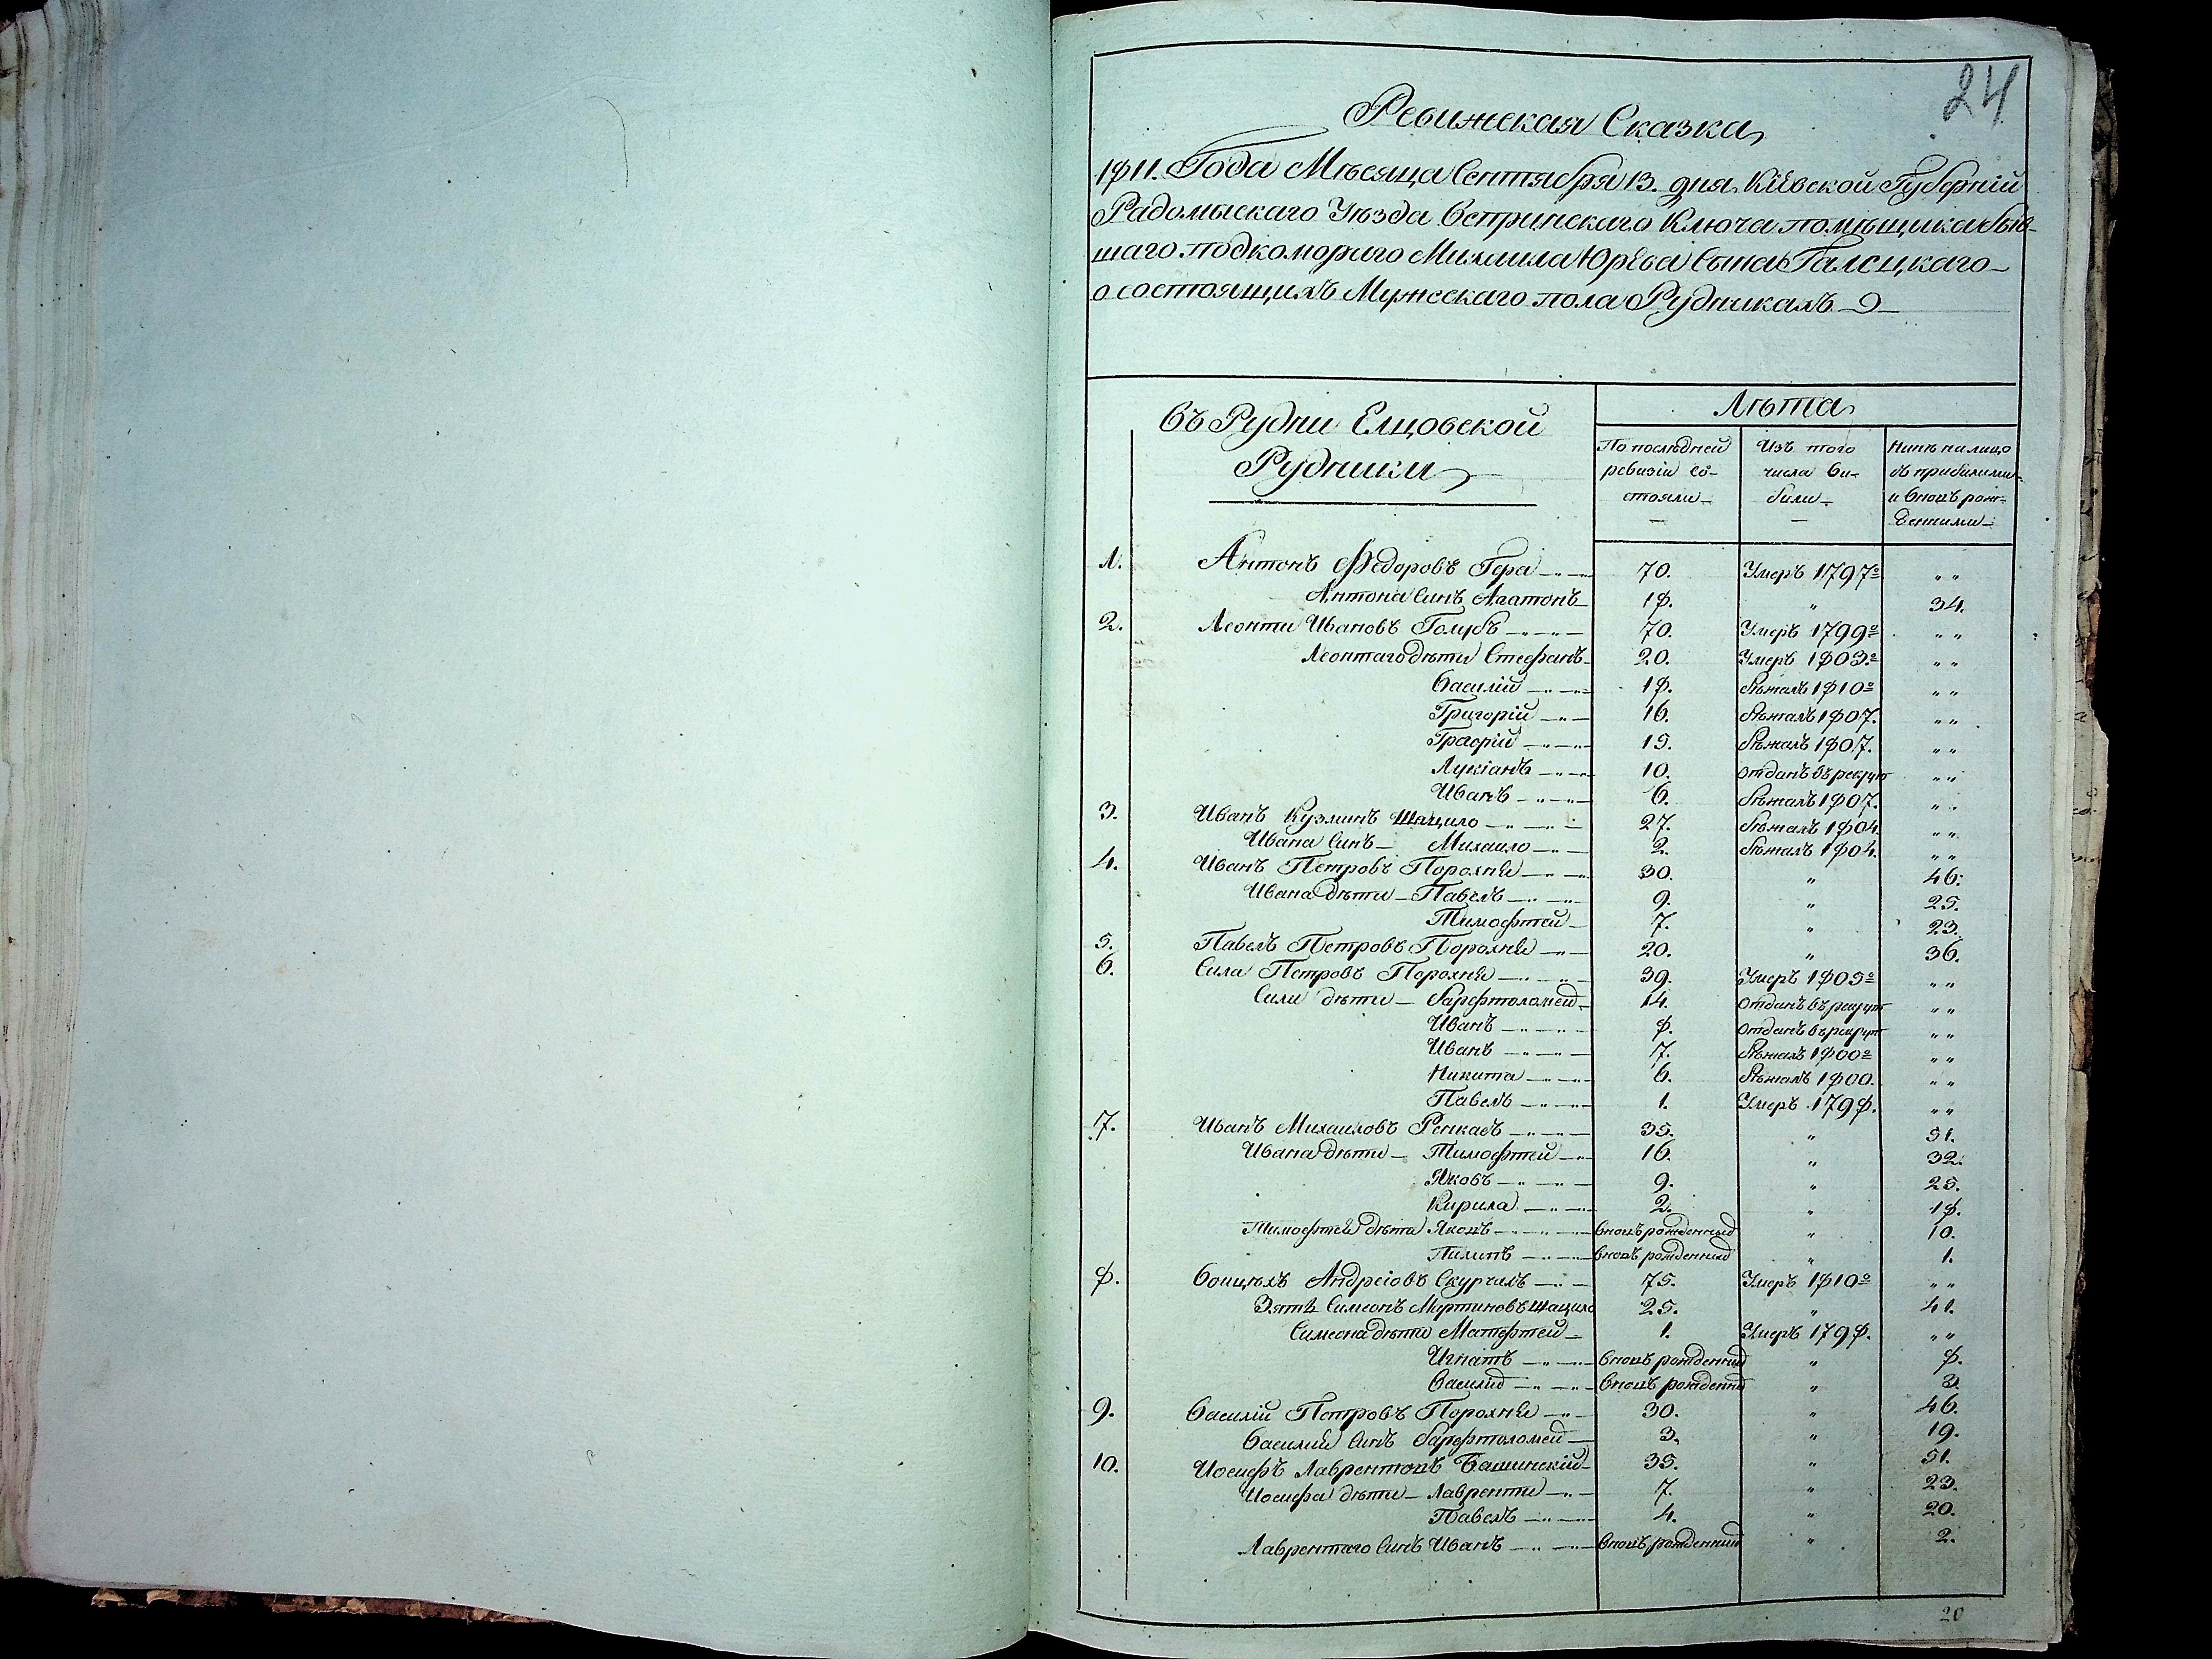 24
Ревижская Сказка
1811. Года Мѣсяца Сентября 13. дня, Кіевской Губерніи
Радомыскаго Уѣзда Вепринскаго Ключа помѣщика быв-
шаго подкоморіго Михаила Юрьва Сына Галецкаго
о состоящихъ Мужескаго пола Рудникахъ
въ Рудни Елцовской
Рудники
Лѣта
По послѣдней ревизіи со- стояли
Изъ того числа ви- били
Нинѣ налицо съ прибилими и вновь рож- денними
1. Антонъ Федоровъ Гора 70. Умеръ 1797º „ „
Антона Синъ Агатонъ 18. „ 34.
2. Леонти Ивановъ Голубъ 70. Умеръ 1799º „ „
Леонтаго дѣти Стефанъ 20. Умеръ 1803.º „ „
Василій 18. бѣжалъ 1810º „ „
Григорій 16. бѣжалъ 1807. „ „
15. бѣжалъ 1807. „ „
Лукіанъ 10. отданъ въ рекрут „ „
Иванъ 6. бѣжалъ 1807. „ „
3. Иванъ Кузминъ Шацило 27. бѣжалъ 1804. „ „
Ивана Синъ Михаило 2. бѣжалъ 1804. „ „
4. Иванъ Петровъ Порохня 30. „ 46.
Ивана дѣти Павелъ 9. „ 25.
Тимофтей 7. „ 23.
5. Павелъ Петровъ Порохня 20. „ 36.
6. Сила Петровъ Порохня 39. Умеръ 1805º „ „
Сили дѣти Варфтоломей 14. отданъ въ рекрут „ „
Иванъ 8. отданъ въ рекрут „ „
Иванъ 7. бѣжалъ 1800º „ „
Никита 6. бѣжалъ 1800. „ „
Павелъ 1. Умеръ 1798. „ „
7. Иванъ Михаиловъ Ренкасъ 35. „ 51.
Ивана дѣти Тимофтей 16. „ 32.
Яковъ 9. „ 25.
Кирила 2. „ 18.
Тимофтея дѣти Яковъ вновь рожденний „ 10.
Пилипъ вновь рожденний „ 1.
8. Войцѣхъ Андреіовъ Скурчихъ 75. Умеръ 1810º „ „
Зять Симеонъ Мартиновъ Шацило 25. „ 41.
Симеона дѣти Матфтей 1. Умеръ 1798. „ „
Игнатъ вновь рожденний „ 8.
Василій вновь рожденни „ 3.
9. Василій Петровъ Порохня 30. „ 46.
Василия Синъ Варфтоломей 3. „ 19.
10. Иосифъ Лаврентовъ Башинскій 35. „ 51.
Иосифа дѣти Лавренти 7. „ 23.
Павелъ 4. „ 20.
Лаврентаго Синъ Иванъ вновь рожденний „ 2.
20